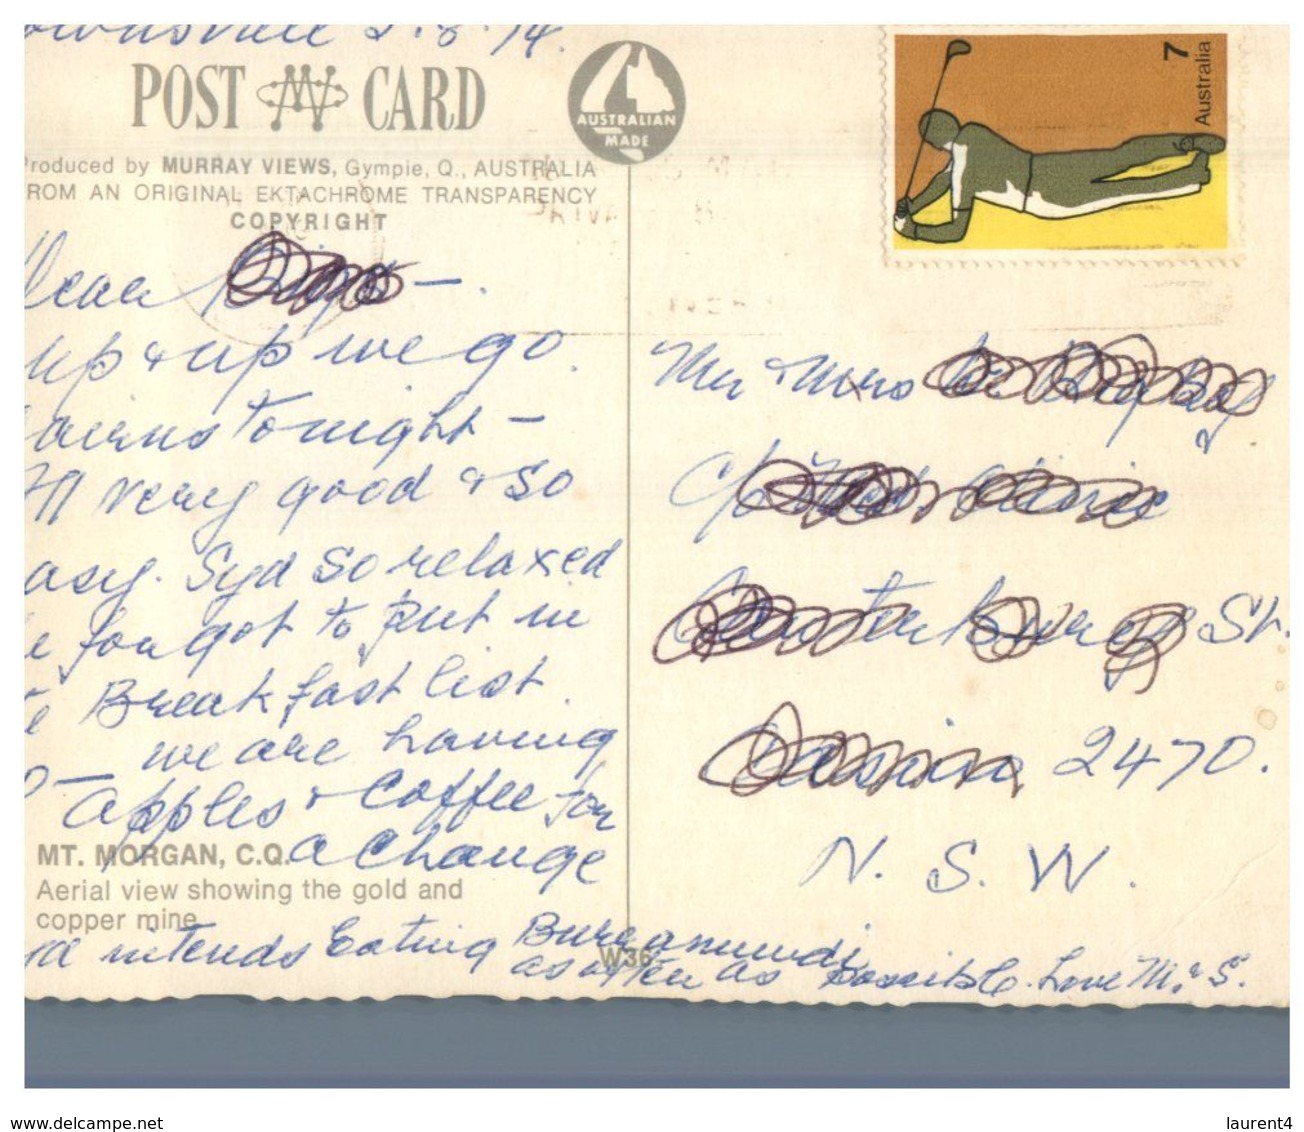 2.8.74.
POST CARD
AUSTRALIAN
MADE
7
Australia
Produced by MURRAY VIEWS, Gympie, Q., AUSTRALIA
FROM AN ORIGINAL EKTACHROME TRANSPARENCY
COPYRIGHT
Dear
up & up we go
tonight –
All very good & so
easy. Syd so relaxed
he forgot to put in
Breakfast list.
we are having
apples & coffee for
a change
intends Eating Burramundi
as often as Possible. Love M. & S.
MT. MORGAN, C.Q.
Aerial view showing the gold and
copper mine
W36
Mr & Mrs
C/o
St.
2470.
N. S. W.
www.delcampe.net
laurent4